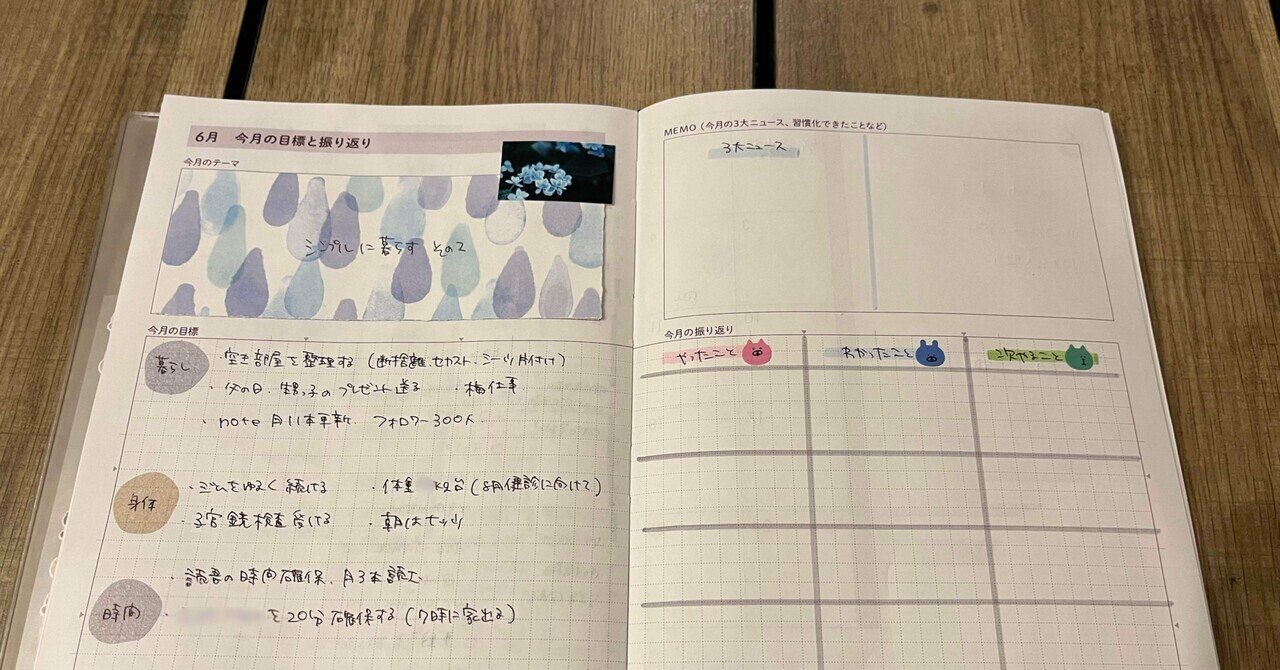 6月 今月の目標と振り返り
今月のテーマ
シンプルに暮らす その2
今月の目標
暮らし
・空き部屋を整理する（断捨離、セカスト、シーツ片付け）
・父の日、甥っ子のプレゼント送る ・梅仕事
・note 月11本更新、フォロワー300人
身体
・ジムをゆるく続ける ・体重 kg台（8月健診に向けて）
・子宮鏡検査受ける ・朝はナッツ
時間
・読書の時間確保、月3本読む
を20分確保する（7時に家出る）
MEMO（今月の3大ニュース、習慣化できたことなど）
3大ニュース
今月の振り返り
やったこと わかったこと 次やること